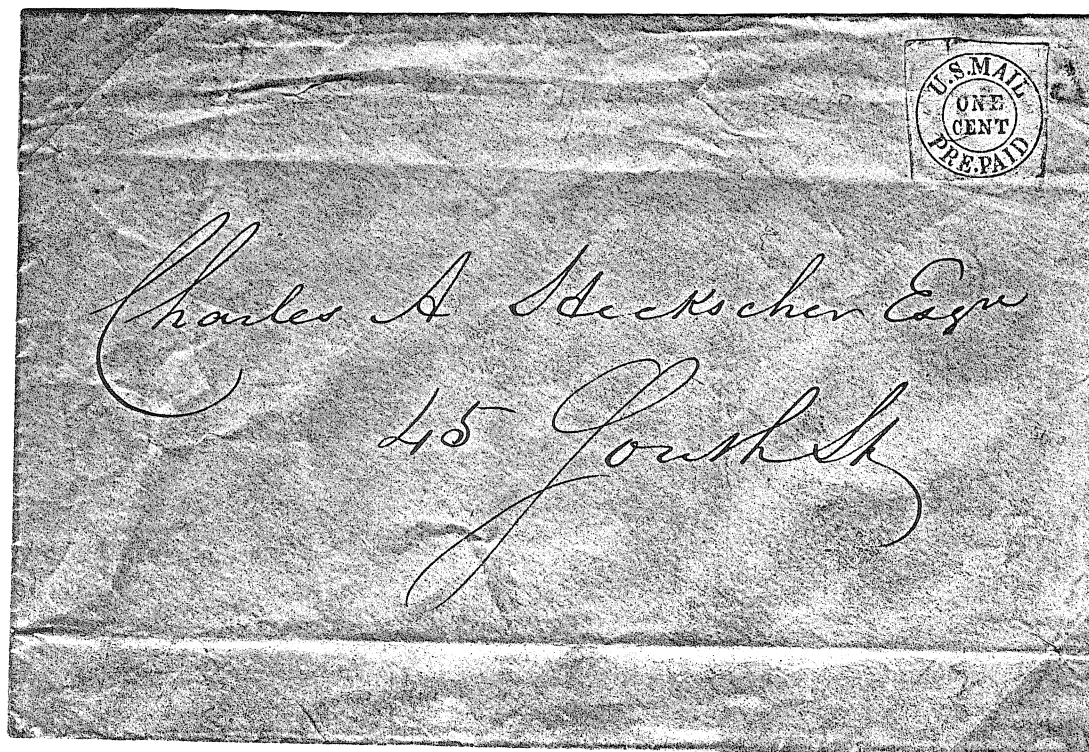 U.S. MAIL
ONE
CENT
PRE.PAID
Charles A Heckscher Esqr
45 South St